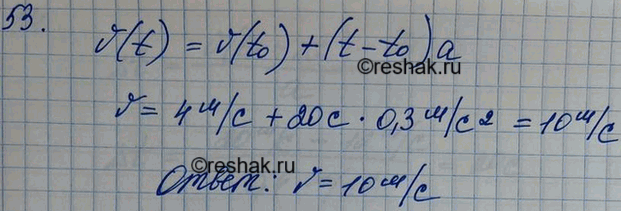 53.
v(t) = v(t₀) + (t - t₀) a
©reshak.ru
v = 4 м/с + 20с · 0,3 м/с² = 10 м/с
©reshak.ru
Ответ: v = 10 м/с